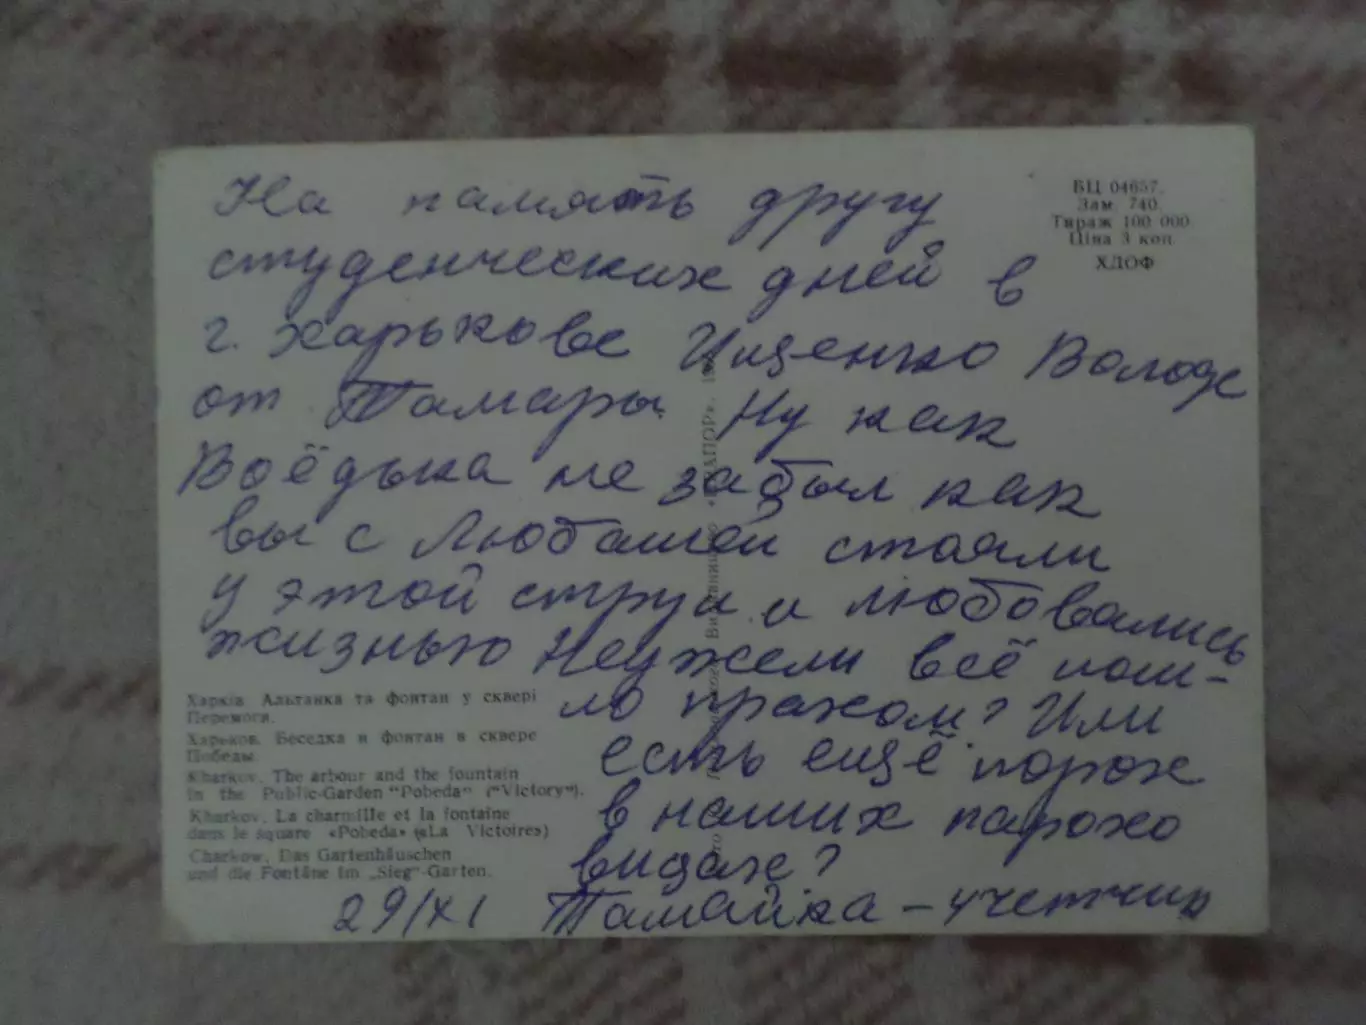 На память другу
студенческих дней в
г. Харькове Ищенко Володе
от Тамары. Ну как
Воёдька не забыл как
вы с Любашей стояли
у этой струи и любовались
жизнью Неужели всё пош-
ло прахом? Или
есть ещё порох
в наших парохо
видах?
29/XI Тамайка – учетчик
БЦ 04657.
Зам. 740.
Тираж 100 000
Ціна 3 коп.
ХДОФ
Харків. Альтанка та фонтан у сквері
Перемоги.
Харьков. Беседка и фонтан в сквере
Победы.
Kharkov. The arbour and the fountain
in the Public-Garden "Pobeda" ("Victory").
Kharkov. La charmille et la fontaine
dans le square «Pobeda» («La Victoire»)
Charkow. Das Gartenhäuschen
und die Fontäne im „Sieg"-Garten.
Видавництво «ПРАПОР».